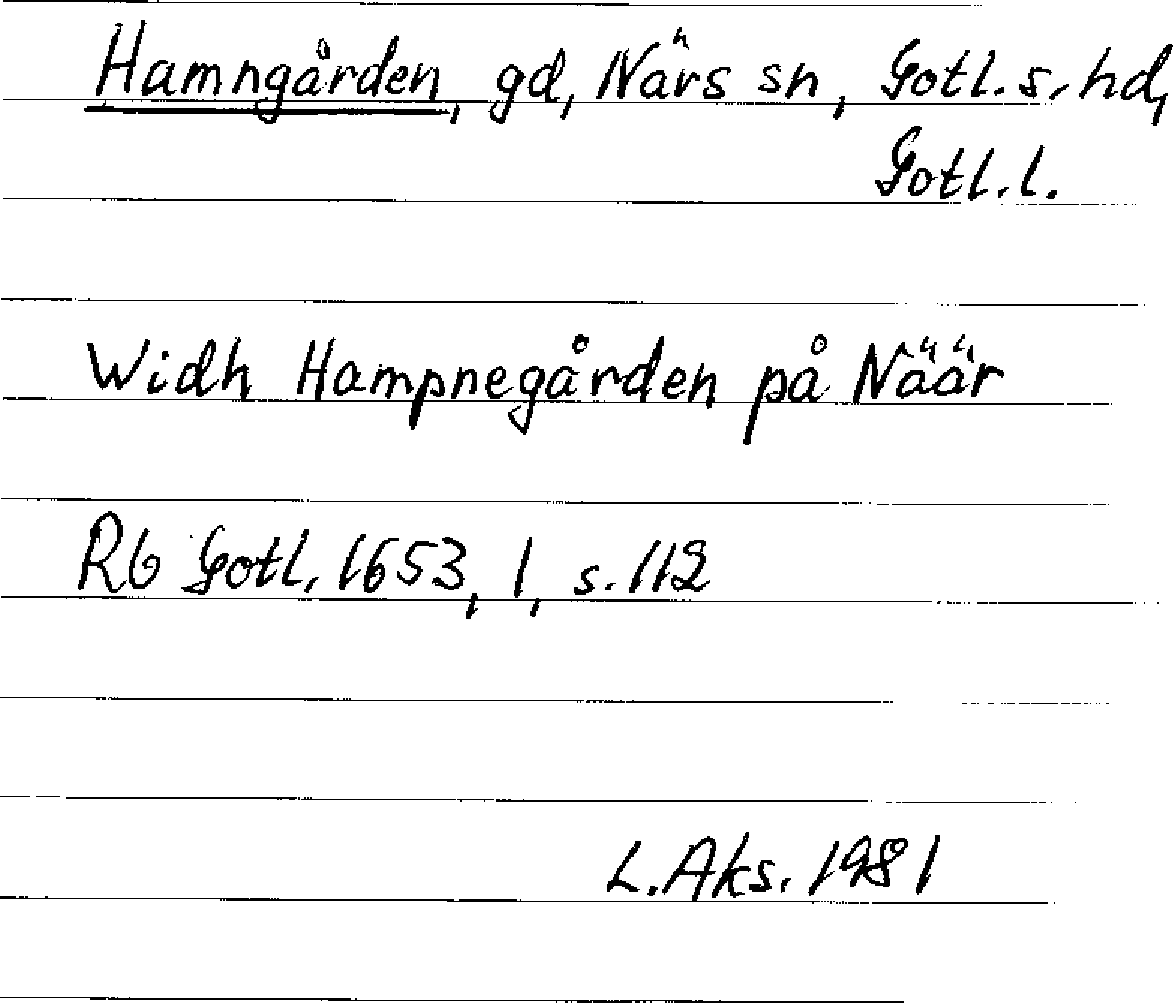 Hamngården, gd, Närs sn, Gotl. s. hd,
Gotl. l.
Widh Hampnegården på Näär
Rb Gotl. 1653, 1, s. 112
L. Aks. 1981